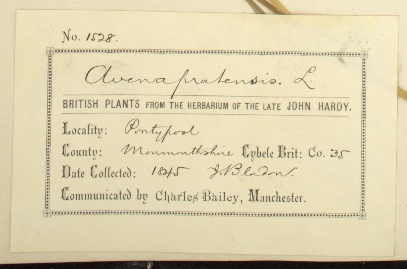 No. 1528.
Avena pratensis. L.
BRITISH PLANTS FROM THE HERBARIUM OF THE LATE JOHN HARDY.
Locality: Pontypool
County: Monmouthshire Cybele Brit: Co. 35
Date Collected: 1845 J Bladon
Communicated by Charles Bailey, Manchester.